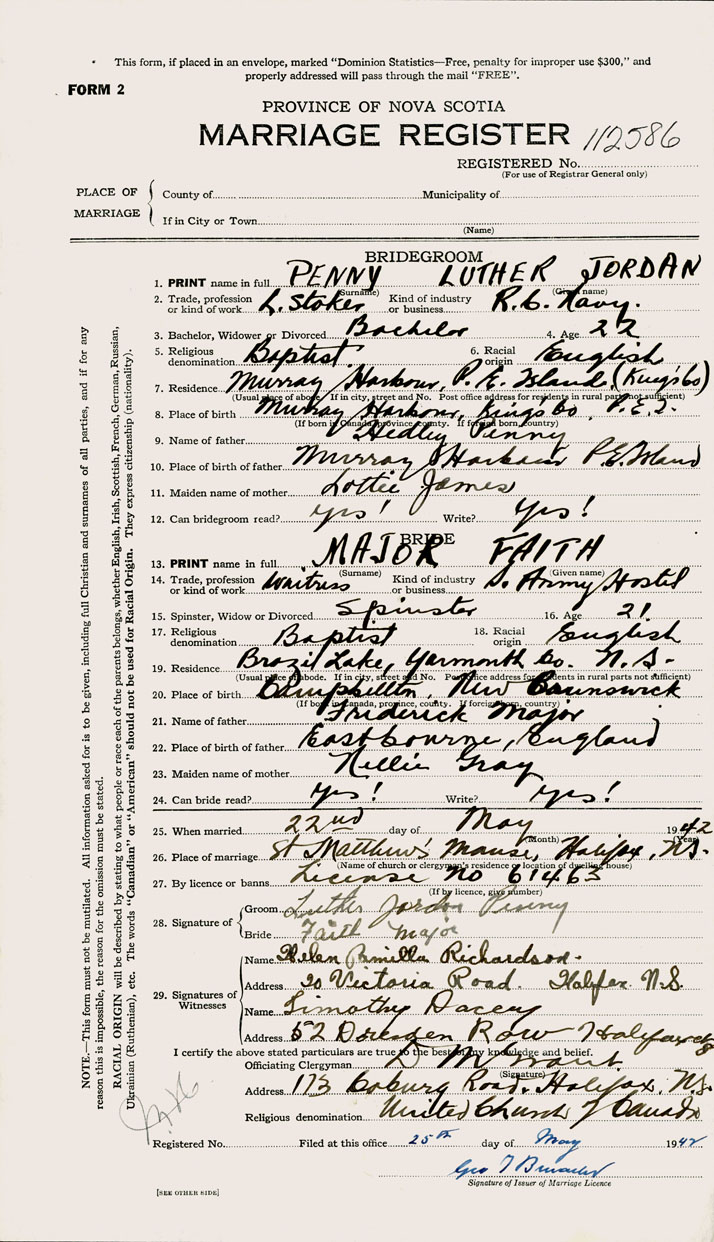 This form, if placed in an envelope, marked "Dominion Statistics—Free, penalty for improper use $300," and
properly addressed will pass through the mail "FREE".
FORM 2
PROVINCE OF NOVA SCOTIA
MARRIAGE REGISTER 112586
REGISTERED No.
(For use of Registrar General only)
PLACE OF MARRIAGE
County of Municipality of
If in City or Town
(Name)
BRIDEGROOM
1. PRINT name in full PENNY LUTHER JORDAN
(Surname) (Given name)
2. Trade, profession or kind of work L. Stoker Kind of industry or business R.C. Navy.
3. Bachelor, Widower or Divorced Bachelor 4. Age 22
5. Religious denomination Baptist 6. Racial origin English
7. Residence Murray Harbour, P.E. Island, (King's Co)
(Usual place of abode. If in city, street and No. Post office address for residents in rural parts not sufficient)
8. Place of birth Murray Harbour, Kings Co, P.E.I.
(If born in Canada, province, county. If foreign born, country)
9. Name of father Hedley Penny
10. Place of birth of father Murray Harbour P.E. Island
11. Maiden name of mother Lottie James
12. Can bridegroom read? Yes! Write? Yes!
BRIDE
13. PRINT name in full MAJOR FAITH
(Surname) (Given name)
14. Trade, profession or kind of work Waitress Kind of industry or business S. Army Hostel
15. Spinster, Widow or Divorced Spinster 16. Age 21
17. Religious denomination Baptist 18. Racial origin English
19. Residence Brazil Lake, Yarmouth Co. N.S.
(Usual place of abode. If in city, street and No. Post office address for residents in rural parts not sufficient)
20. Place of birth Campbellton, New Brunswick
(If born in Canada, province, county. If foreign born, country)
21. Name of father Friderick Major
22. Place of birth of father Eastbourne, England
23. Maiden name of mother Nellie Gray
24. Can bride read? Yes! Write? Yes!
25. When married 22nd day of May 1942
(Month) (Year)
26. Place of marriage St Matthew's Manse, Halifax, N.S.
(Name of church or clergyman's residence or location of dwelling house)
27. By licence or banns License No 61463
(If by licence, give number)
28. Signature of
Groom Luther Jordan Penny
Bride Faith Major
29. Signatures of Witnesses
Name Helen Richardson
Address 20 Victoria Road. Halifax N.S.
Name Timothy Dacey
Address 52 Dresden Row Halifax
I certify the above stated particulars are true to the best of my knowledge and belief.
Officiating Clergyman D M Grant
(Signature)
Address 173 Coburg Road, Halifax, N.S.
Religious denomination United Church of Canada
Registered No. Filed at this office 25th day of May 1942
Geo
Signature of Issuer of Marriage Licence
[SEE OTHER SIDE]
NOTE.—This form must not be mutilated. All information asked for is to be given, including full Christian and surnames of all parties, and if for any
reason this is impossible, the reason for the omission must be stated.
RACIAL ORIGIN will be described by stating to what people or race each of the parents belongs, whether English, Irish, Scottish, French, German, Russian,
Ukrainian (Ruthenian), etc. The words "Canadian" or "American" should not be used for Racial Origin. They express citizenship (nationality).